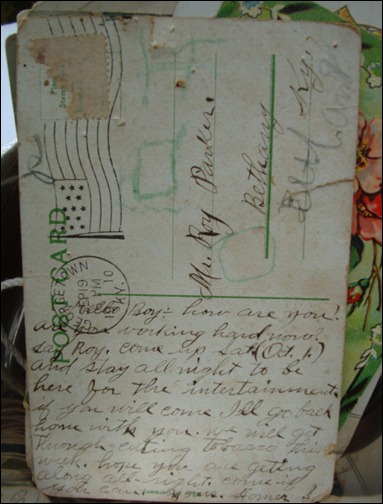 POST CARD
Mr. Roy Parker.
Bethany
Ky.
SEP 19
PM
KY.
Hello Boy:- how are you?
are you working hard now?
say Roy. come up Sat (Oct. 1)
and stay all night to be
here for the intertainment.
if you will come I'll go back
home with you. we will get
through cutting tobacco this
week. hope you are geting
along all-right. come if
you can. Homer S.